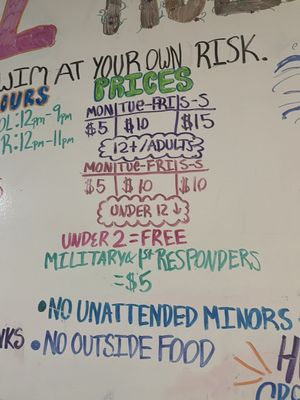 SWIM AT YOUR OWN RISK.
PRICES
HOURS
MON TUE-FRI S-S
$5 $10 $15
12+/ADULTS
:12PM-9PM
R:12PM-11PM
MON TUE-FRI S-S
$5 $10 $10
UNDER 12 ↓
UNDER 2 = FREE
MILITARY & 1st RESPONDERS
= $5
• NO UNATTENDED MINORS
• NO OUTSIDE FOOD